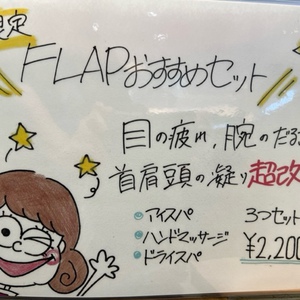 限定
FLAPおすすめセット
目の疲れ、腕のだる
首肩頭の凝り超改
アイスパ
ハンドマッサージ
ドライスパ
3つセット
¥2,200